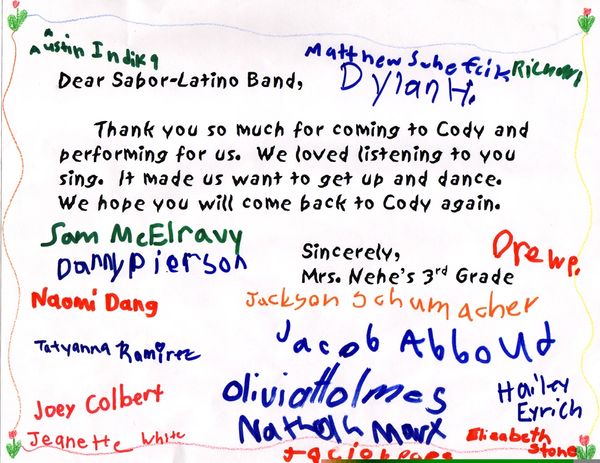 Austin Indika
Matthew
Richard
Dylan H.
Dear Sabor-Latino Band,
Thank you so much for coming to Cody and
performing for us. We loved listening to you
sing. It made us want to get up and dance.
We hope you will come back to Cody again.
Sam McElravy
Danny Pierson
Sincerely,
Mrs. Nehe's 3rd Grade
Drew P.
Naomi Dang
Jackson Schumacher
Tatyanna Ramirez
Jacob Abboud
Olivia Holmes
Hailey
Eyrich
Joey Colbert
Nathan Marx
Jeanette White
Elizabeth
Stone